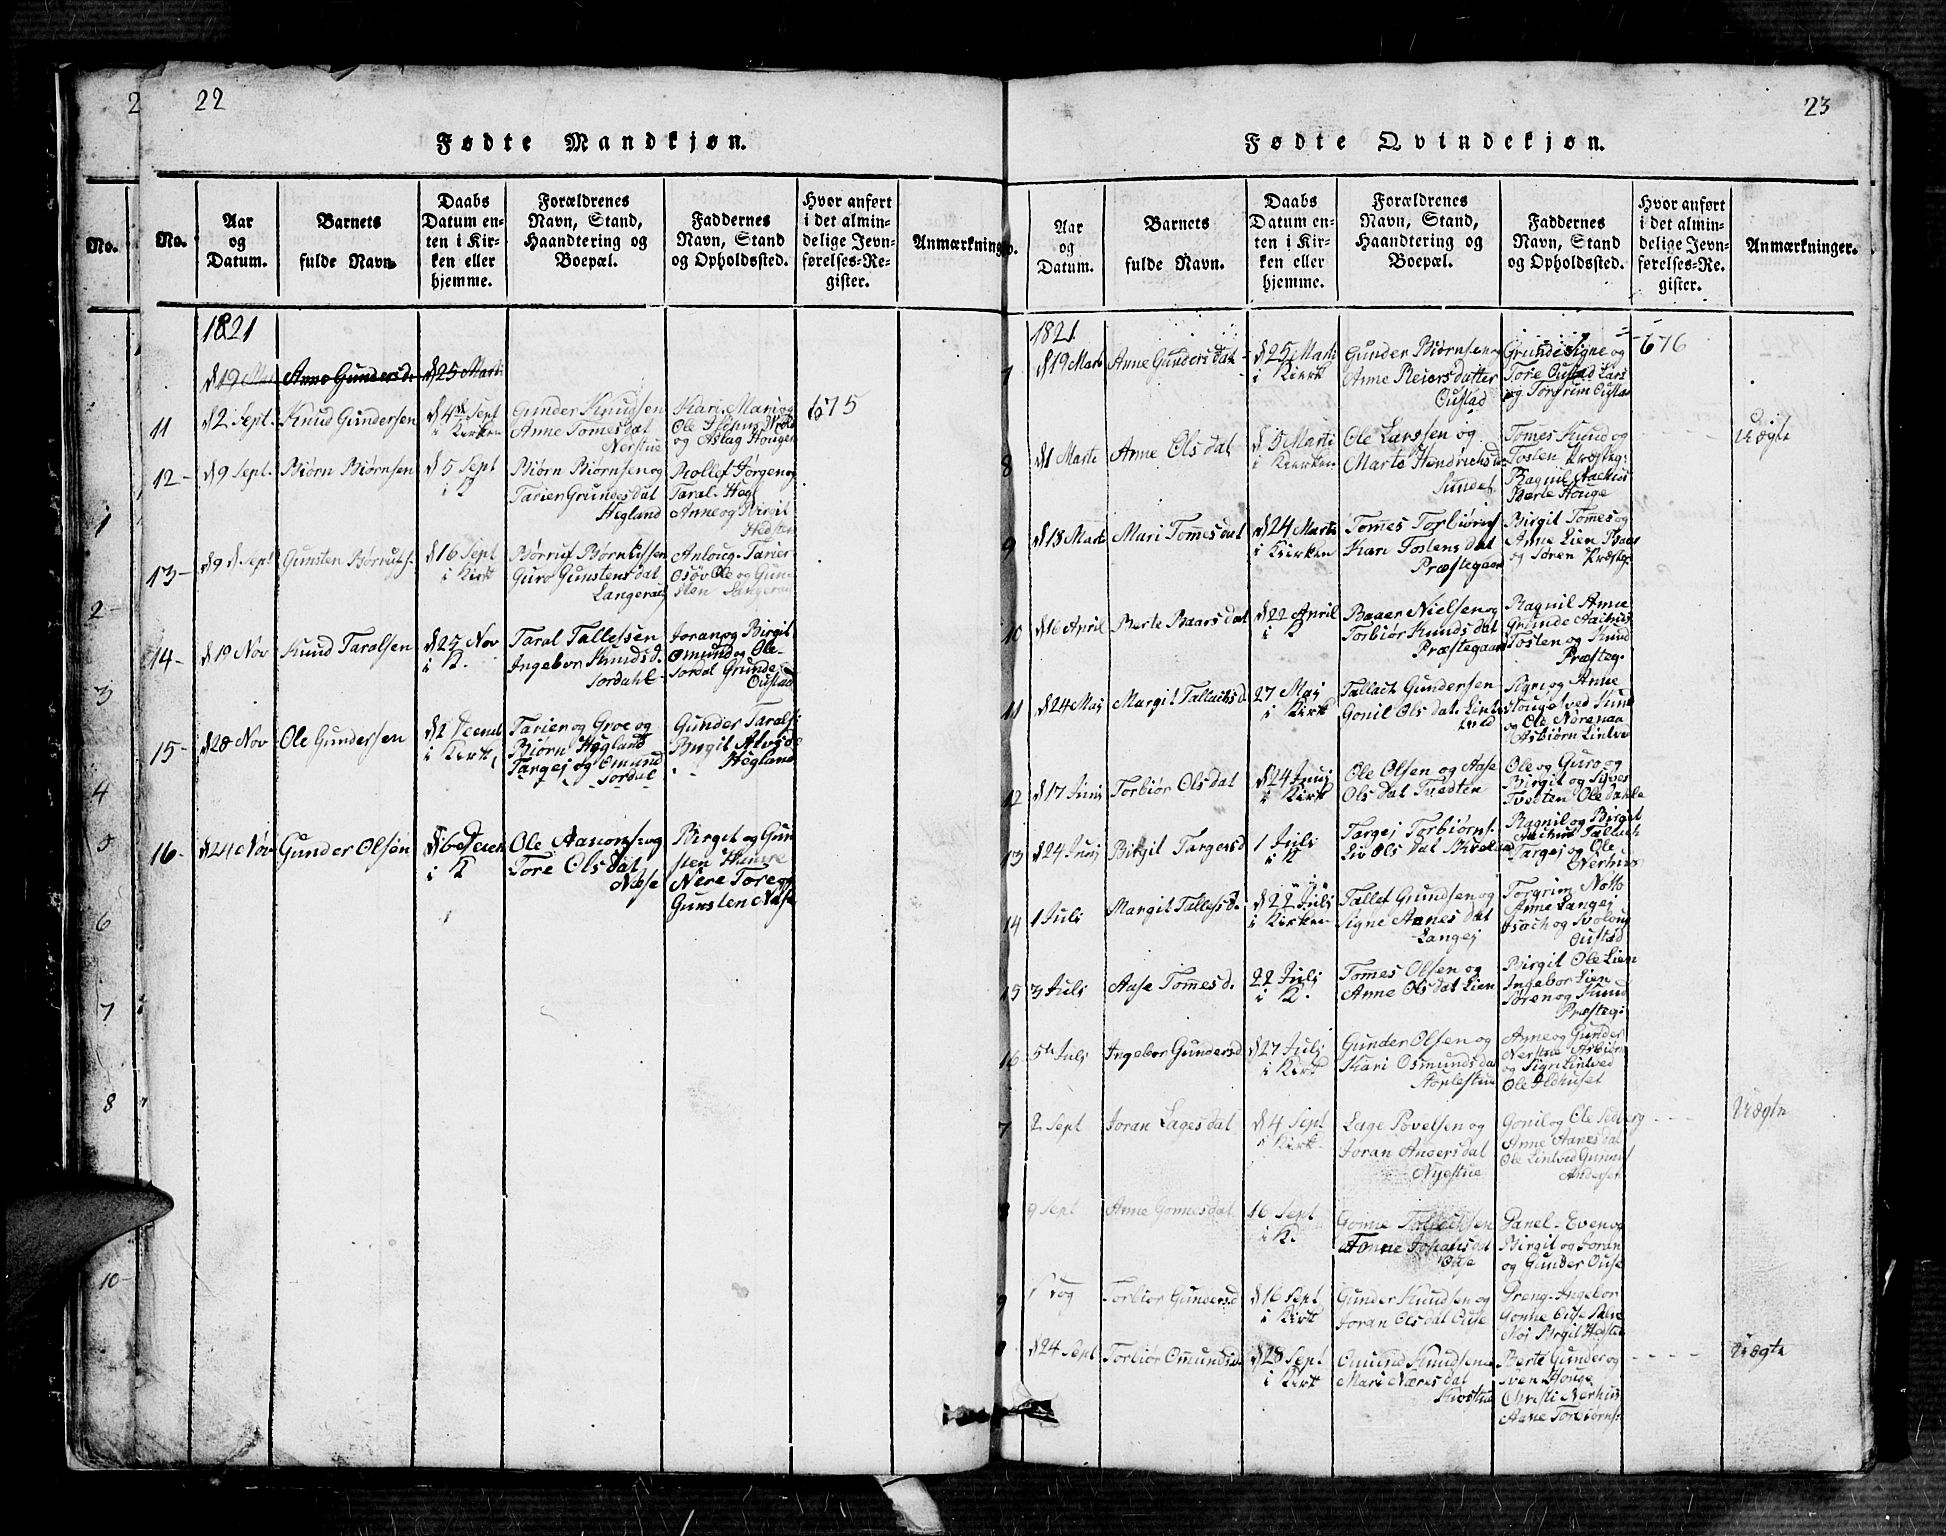 22
Fødte Mandkjøn.
No.
Aar
og
Datum.
Barnets
fulde Navn.
Daabs
Datum en-
ten i Kir-
ken eller
hjemme.
Forældrenes
Navn, Stand,
Haandtering og
Boepæl.
Faddernes
Navn, Stand
og Opholdssted.
Hvor anført
i det almin-
delige Jevn-
førelses-Re-
gister.
Anmærkning
1821
d 19 Mar Anne Gundersd. d 25 Marti
11
d 2 Sept. Knud Gundersen
d 4de Sept
i Kirken
Gunder Knudsen
Anne Tomesdat
Nerstue
Kari Mari og
Ole
og Aslag Hougen
675
12
d 9 Sept. Biørn Biørnsen
d 5 Sept
i K
Biørn Biørnsen og
Tarier Grundesdat
Hegland
Rollef Jørgen og
Taral Hegl
Anne og Birgit
13
d 9 d Sept Gunsten Børrufs.
d 16 Sept
i Kirk
Børruf
Guro Gunstensdat
Langeraej
Anloug Tarier
Osøv Ole og Gun-
sten
14
d 19 Nov Knud Taralsen
d 25 Nov
i K.
Taral Tallefsen
Ingebor Knudsd.
Jordahl
Joran og Birgit
Omund og Ole
Jordal Grunde
Oustad
15
d 28 Nov Ole Gundersen
i Kirk
Tarier og Groe og
Biørn Hegland
Targej og Omund
Jordal
Gunder Taralf:
Birgit Alvsd
Hegland
16
d 24 Nov Gunder Olsøn
i K
Ole Aanons: og
Tore Olsdat
Næse
Birget og Gun
sten
Nere Tore og
Gunsten Næse
23
Fødte Qvindekjøn.
Aar
og
Datum.
Barnets
fulde Navn.
Daabs
Datum en-
ten i Kir-
ken eller
hjemme.
Forældrenes
Navn, Stand,
Haandtering og
Boepæl.
Faddernes
Navn, Stand
og Opholdssted.
Hvor anført
i det almin-
delige Jevn-
førelses-Re-
gister.
Anmærkninger.
1821
7
d 19 Marti Anne Gundersdat
d 25 Marti
i Kirk
Gunder Biørnsen og
Anne Reiersdatter
Oustad
Grunde Signe og
Tore Oustad Lars
og Torgrum Oustad
676
8
d 1 Marti Anne Olsdat
d 5 Marti
i Kierken
Ole Larssen og
Marte Hendrichsd
Sundet
Tomes Knud og
Tosten Præsteg:
Ragnil
Berte Houge
Uægte
9
d 18 Marti Mari Tomesdat
d 24 Marti
i Kirken
Tomes Torbiørns
Kari Tostensdat
Præstegaar
Birgit Tomes og
Anne Lien Baar
og Søren Præsteg:
10
d 16 April Berte Baarsdat
d 22 April
i K
Baaer Nielsen og
Torbiør Knudsdat
Præstegaar
Ragnil Anne
Grunde Aachus
Tosten og Knud
Præsteg:
11
d 24 Maj Margit Tallachsd.
27 Maj
i Kirk
Tallach Gundersen
Gonil Olsdat. Lint
Signe og Anne
Houge ved Knud
og Ole Norenaa
Asbiørn Lintve
12
d 17 Junj Torbiør Olsdat
d 24 Junj
i Kirk
Ole Olsen og Aase
Olsdat Tuedten
Ole og Guro og
Birgit og Siver
Tvedten Ole Dahle
13
d 24 Junj Birgit Targersd
1 Juli
i K
Targej Torbiørns.
Liv Olsdat
Ragnil og Birgit
Tallach
Targej og Ole
Nerhus
14
1 Juli Margit Tallefsd.
d 22 Julj
i Kirken
Tallef Gundsen og
Signe Aanesdat
Langej
Torgrim
Anne Langej
Oustad
15
3 Julj Aase Tomesd.
22 Julj
i K.
Tomes Olsen og
Anne Olsdat Lien
Birgit Ole Lien
Ingebor Lien
Søren og Knud
Præsteg:
16
5te Julj Ingebor Gundersd
d 27 Julj
i Kirk
Gunder Olsen og
Kari Osmundsdat
Anne og Gunder
Nerstue Asbiørn
og Sigri Lintved
Ole Ildhuset
7
2 Sept Joran Lagesdat
d 4 Sept
i Kirk
Lage Povelsen og
Joran Andersdat
Nyestue
Gonil og Ole Sedberg
Anne Aanesdat
Ole Lintved Gunuf
Andersen
Uægte
8
9 Sept Anne Gonnesdat
16 Sept
i K.
Gonne
Ouse
Panel Even og
Birgit og Joran
og Gunder Ouse
9
Torbiør Gundersd
d 16 Sept
i Kirk
Gunder Knudsen og
Joran Olsdat Ouse
Dreng Angebor
Gonne Ouse
Birgit
d 24 Sept Torbiør Omundsdat
d 28 Sept
i Kirk
Omund Knudsen
Mari Næresdat
Berte Gunder og
Sven Houge
Christi Nerhus
Aane Torbiørns.
Uægte